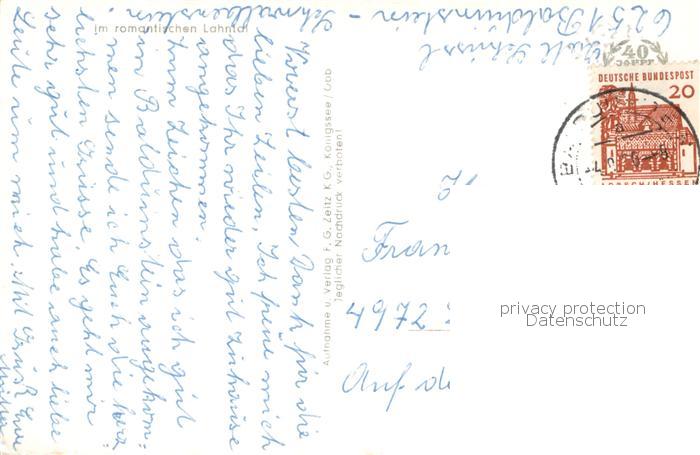 im romantischen Lahntal
6251 Balduinstein -
Schwellenstein.
Vorerst besten Dank für die
lieben Zeilen, Ich freue mich
das Ihr wieder gut zuhause
angekommen.
Zum Zeichen das ich gut
in Balduinstein angekom-
men sende ich Euch die herz
lichsten Grüsse. Es geht mir
sehr gut und habe auch liebe
Leute um mich. Mit Gruß Eure
Mutter
Aufnahme u. Verlag F. G. Zeitz K.G., Königssee/Obb
Jeglicher Nachdruck verboten!
40
DEUTSCHE BUNDESPOST
20
LORSCH/HESSEN
Fran
4972
Auf de
privacy protection
Datenschutz